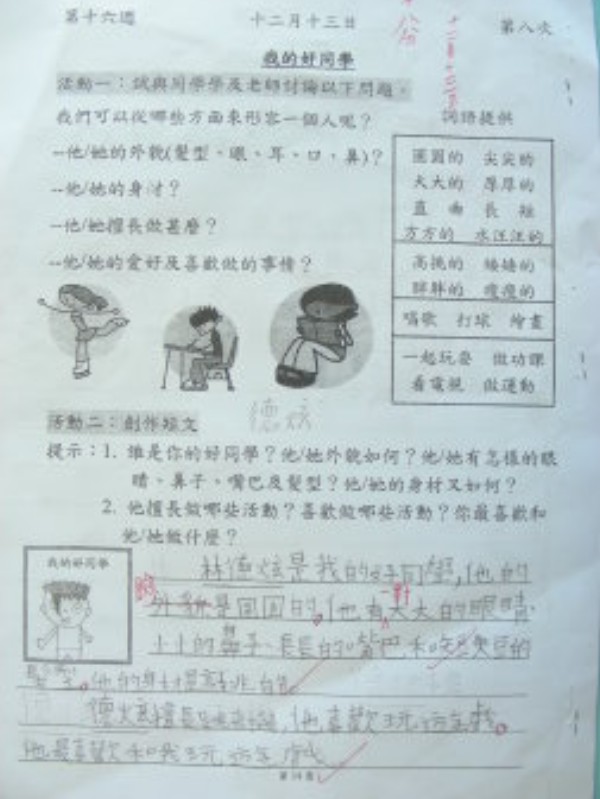 第十六週 十二月十三日 第八次
我的好同學
活動一：試與同學及老師討論以下問題。
我們可以從哪些方面來形容一個人呢？
--他/她的外貌(髮型、眼、耳、口、鼻)？
--他/她的身才？
--他/她擅長做甚麼？
--他/她的愛好及喜歡做的事情？
詞語提供
圓圓的 尖尖的
大大的 厚厚的
直 曲 長 短
方方的 水汪汪的
高挑的 矮矮的
胖胖的 瘦瘦的
唱歌 打球 繪畫
一起玩耍 做功課
看電視 做運動
活動二：創作短文
德炫
提示：1. 誰是你的好同學？他/她外貌如何？他/她有怎樣的眼
睛、鼻子、嘴巴及髮型？他/她的身材又如何？
2. 他擅長做哪些活動？喜歡做哪些活動？你最喜歡和
他/她做什麼？
我的好同學
林德炫是我的好同學,他的
外貌是圓圓的。他有一對大大的眼睛
小小的鼻子、長長的嘴巴和短短的
他的身才是高挑的。
德炫擅長 他喜歡玩遊戲。
他最喜歡和我玩遊戲